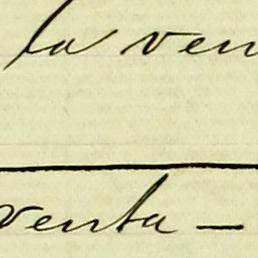 la ven
venta —